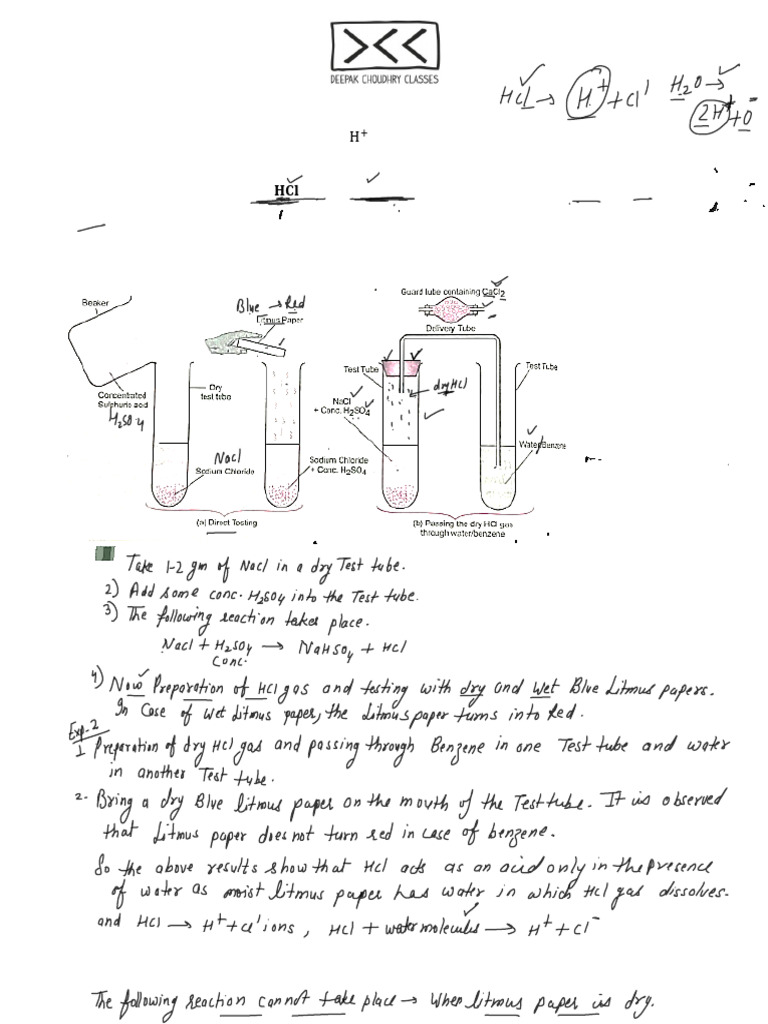 DEEPAK CHOUDHRY CLASSES
HCl → H⁺ + Cl' H₂O →
2H⁺ + O⁻
H⁺
HCl
Beaker
Blue → Red
Litmus Paper
Guard tube containing CaCl₂
Delivery Tube
Concentrated
Sulphuric acid
H₂SO4
Dry
test tube
Test Tube
NaCl
+ Conc. H₂SO₄
dry HCl
Test Tube
Water/Benzene
Nacl
Sodium Chloride
Sodium Chloride
+ Conc. H₂SO₄
(a) Direct Testing
(b) Passing the dry HCl gas
through water/benzene
Take 1-2 gm of Nacl in a dry Test tube.
2) Add some conc. H₂SO4 into the Test tube.
3) The following reaction takes place.
Nacl + H₂SO4 → NaHSO4 + HCl
Conc.
4) Now Preparation of HCl gas and testing with dry and Wet Blue Litmus papers.
In Case of Wet Litmus paper, the Litmus paper turns into Red.
Exp-2
1 Preparation of dry HCl gas and passing through Benzene in one Test tube and water
in another Test tube.
2- Bring a dry Blue litmus paper on the mouth of the Test tube. It is observed
that Litmus paper does not turn red in case of benzene.
So the above results show that HCl acts as an acid only in the presence
of water as moist litmus paper has water in which HCl gas dissolves.
and HCl → H⁺ + Cl' ions, HCl + water molecules → H⁺ + Cl⁻
The following reaction cannot take place → When litmus paper is dry.